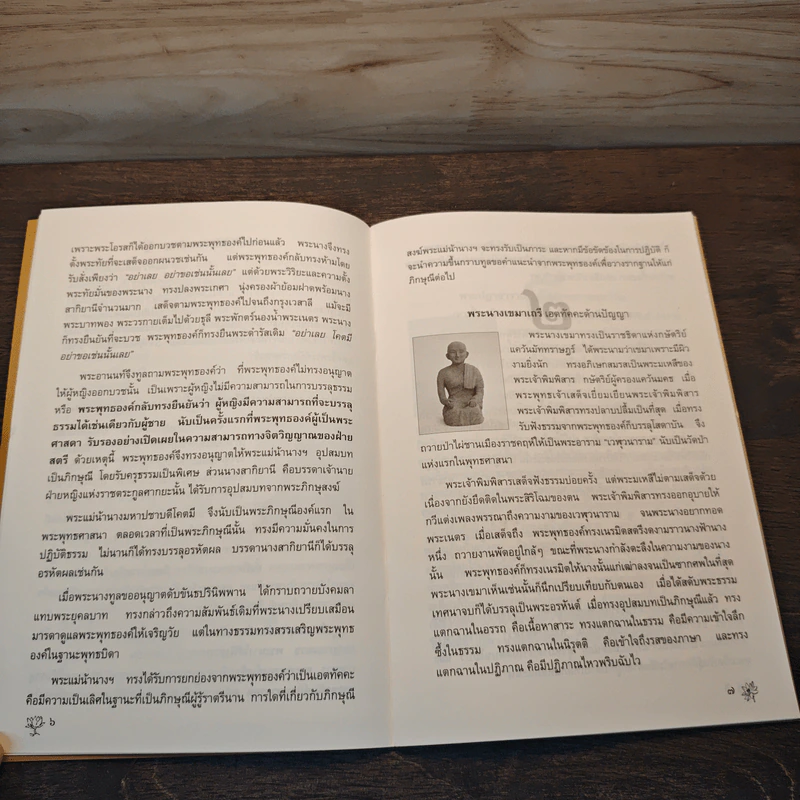 เพราะพระโอรสก็ได้ออกบวชตามพระพุทธองค์ไปก่อนแล้ว พระนางจึงทรง
ตั้งพระทัยที่จะเสด็จออกผนวชเช่นกัน แต่พระพุทธองค์กลับทรงห้ามโดย
รับสั่งเพียงว่า "อย่าเลย อย่าขอเช่นนั้นเลย" แต่ด้วยพระวิริยะและความตั้ง
พระทัยมั่นของพระนาง ทรงปลงพระเกศา นุ่งครองผ้าย้อมฝาดพร้อมนาง
สากิยานีจำนวนมาก เสด็จตามพระพุทธองค์ไปจนถึงกรุงเวสาลี แม้จะมี
พระบาทพอง พระวรกายเต็มไปด้วยธุลี พระพักตร์นองน้ำพระเนตร พระนาง
ก็ทรงยืนยันที่จะบวช พระพุทธองค์ก็ทรงยืนพระดำรัสเดิม "อย่าเลย โคตมี
อย่าขอเช่นนั้นเลย"
พระอานนท์จึงทูลถามพระองค์ว่า ที่พระพุทธองค์ไม่ทรงอนุญาต
ให้ผู้หญิงออกบวชนั้น เป็นเพราะผู้หญิงไม่มีความสามารถในการบรรลุธรรม
หรือ พระพุทธองค์กลับทรงยืนยันว่า ผู้หญิงมีความสามารถที่จะบรรลุ
ธรรมได้เช่นเดียวกับผู้ชาย นับเป็นครั้งแรกที่พระพุทธองค์ผู้เป็นพระ
ศาสดา รับรองอย่างเปิดเผยในความสามารถทางจิตวิญญาณของฝ่าย
สตรี ด้วยเหตุนี้ พระพุทธองค์จึงทรงอนุญาตให้พระแม่น้านางฯ อุปสมบท
เป็นภิกษุณี โดยรับครุธรรมเป็นพิเศษ ส่วนนางสากิยานี คือบรรดาเจ้านาย
ฝ่ายหญิงแห่งราชตระกูลศากยะนั้น ได้รับการอุปสมบทจากพระภิกษุสงฆ์
พระแม่น้านางมหาปชาบดีโคตมี จึงนับเป็นพระภิกษุณีองค์แรก ใน
พระพุทธศาสนา ตลอดเวลาที่เป็นพระภิกษุณีนั้น ทรงมีความมั่นคงในการ
ปฏิบัติธรรม ไม่นานก็ได้ทรงบรรลุอรหัตผล บรรดานางสากิยานีก็ได้บรรลุ
อรหัตผลเช่นกัน
เมื่อพระนางทูลขออนุญาตดับขันธปรินิพพาน ได้กราบถวายบังคมลา
แทบพระยุคลบาท ทรงกล่าวถึงความสัมพันธ์เดิมที่พระนางเปรียบเสมือน
มารดาดูแลพระพุทธองค์ให้เจริญวัย แต่ในทางธรรมทรงสรรเสริญพระพุทธ
องค์ในฐานะพุทธบิดา
พระแม่น้านางฯ ทรงได้รับการยกย่องจากพระพุทธองค์ว่าเป็นเอตทัคคะ
คือมีความเป็นเลิศในฐานะที่เป็นภิกษุณีผู้รู้ราตรีนาน การใดที่เกี่ยวกับภิกษุณี
๖
สงฆ์พระแม่น้านางฯ จะทรงรับเป็นภาระ และหากมีข้อขัดข้องในการปฏิบัติ ก็
จะนำความขึ้นกราบทูลขอคำแนะนำจากพระพุทธองค์เพื่อวางรากฐานให้แก่
ภิกษุณีต่อไป
๒
พระนางเขมาเถรี เอตทัคคะด้านปัญญา
พระนางเขมาทรงเป็นราชธิดาแห่งกษัตริย์
แคว้นมัททราษฎร์ ได้พระนามว่าเขมาเพราะมีผิว
งามยิ่งนัก ทรงอภิเษกสมรสเป็นพระมเหสีของ
พระเจ้าพิมพิสาร กษัตริย์ผู้ครองแคว้นมคธ เมื่อ
พระพุทธเจ้าเสด็จเยี่ยมเยียนพระเจ้าพิมพิสาร
พระเจ้าพิมพิสารทรงปลาบปลื้มเป็นที่สุด เมื่อทรง
รับฟังธรรมจากพระพุทธองค์ก็บรรลุโสดาบัน จึง
ถวายป่าไผ่ชานเมืองราชคฤห์ให้เป็นพระอาราม "เวฬุวนาราม" นับเป็นวัดป่า
แห่งแรกในพุทธศาสนา
พระเจ้าพิมพิสารเสด็จฟังธรรมบ่อยครั้ง แต่พระมเหสีไม่ตามเสด็จด้วย
เนื่องจากยังยึดติดในพระสิริโฉมของตน พระเจ้าพิมพิสารทรงออกอุบายให้
กวีแต่งเพลงพรรณาถึงความงามของเวฬุวนาราม จนพระนางอยากทอด
พระเนตร เมื่อเสด็จถึง พระพุทธองค์ทรงเนรมิตสตรีงดงามราวนางฟ้านาง
หนึ่ง ถวายงานพัดอยู่ใกล้ๆ ขณะที่พระนางกำลังตะลึงในความงามของนาง
นั้น พระพุทธองค์ก็ทรงเนรมิตให้นางนั้นแก่เฒ่าลงจนเป็นซากศพในที่สุด
พระนางเขมาเห็นเช่นนั้นก็นึกเปรียบเทียบกับตนเอง เมื่อได้สดับพระธรรม
เทศนาจบก็ได้บรรลุเป็นพระอรหันต์ เมื่อทรงอุปสมบทเป็นภิกษุณีแล้ว ทรง
แตกฉานในอรรถ คือเนื้อหาสาระ ทรงแตกฉานในธรรม คือมีความเข้าใจลึก
ซึ้งในธรรม ทรงแตกฉานในนิรุตติ คือเข้าใจถึงรสของภาษา และทรง
แตกฉานในปฏิภาณ คือมีปฏิภาณไหวพริบฉับไว
๗